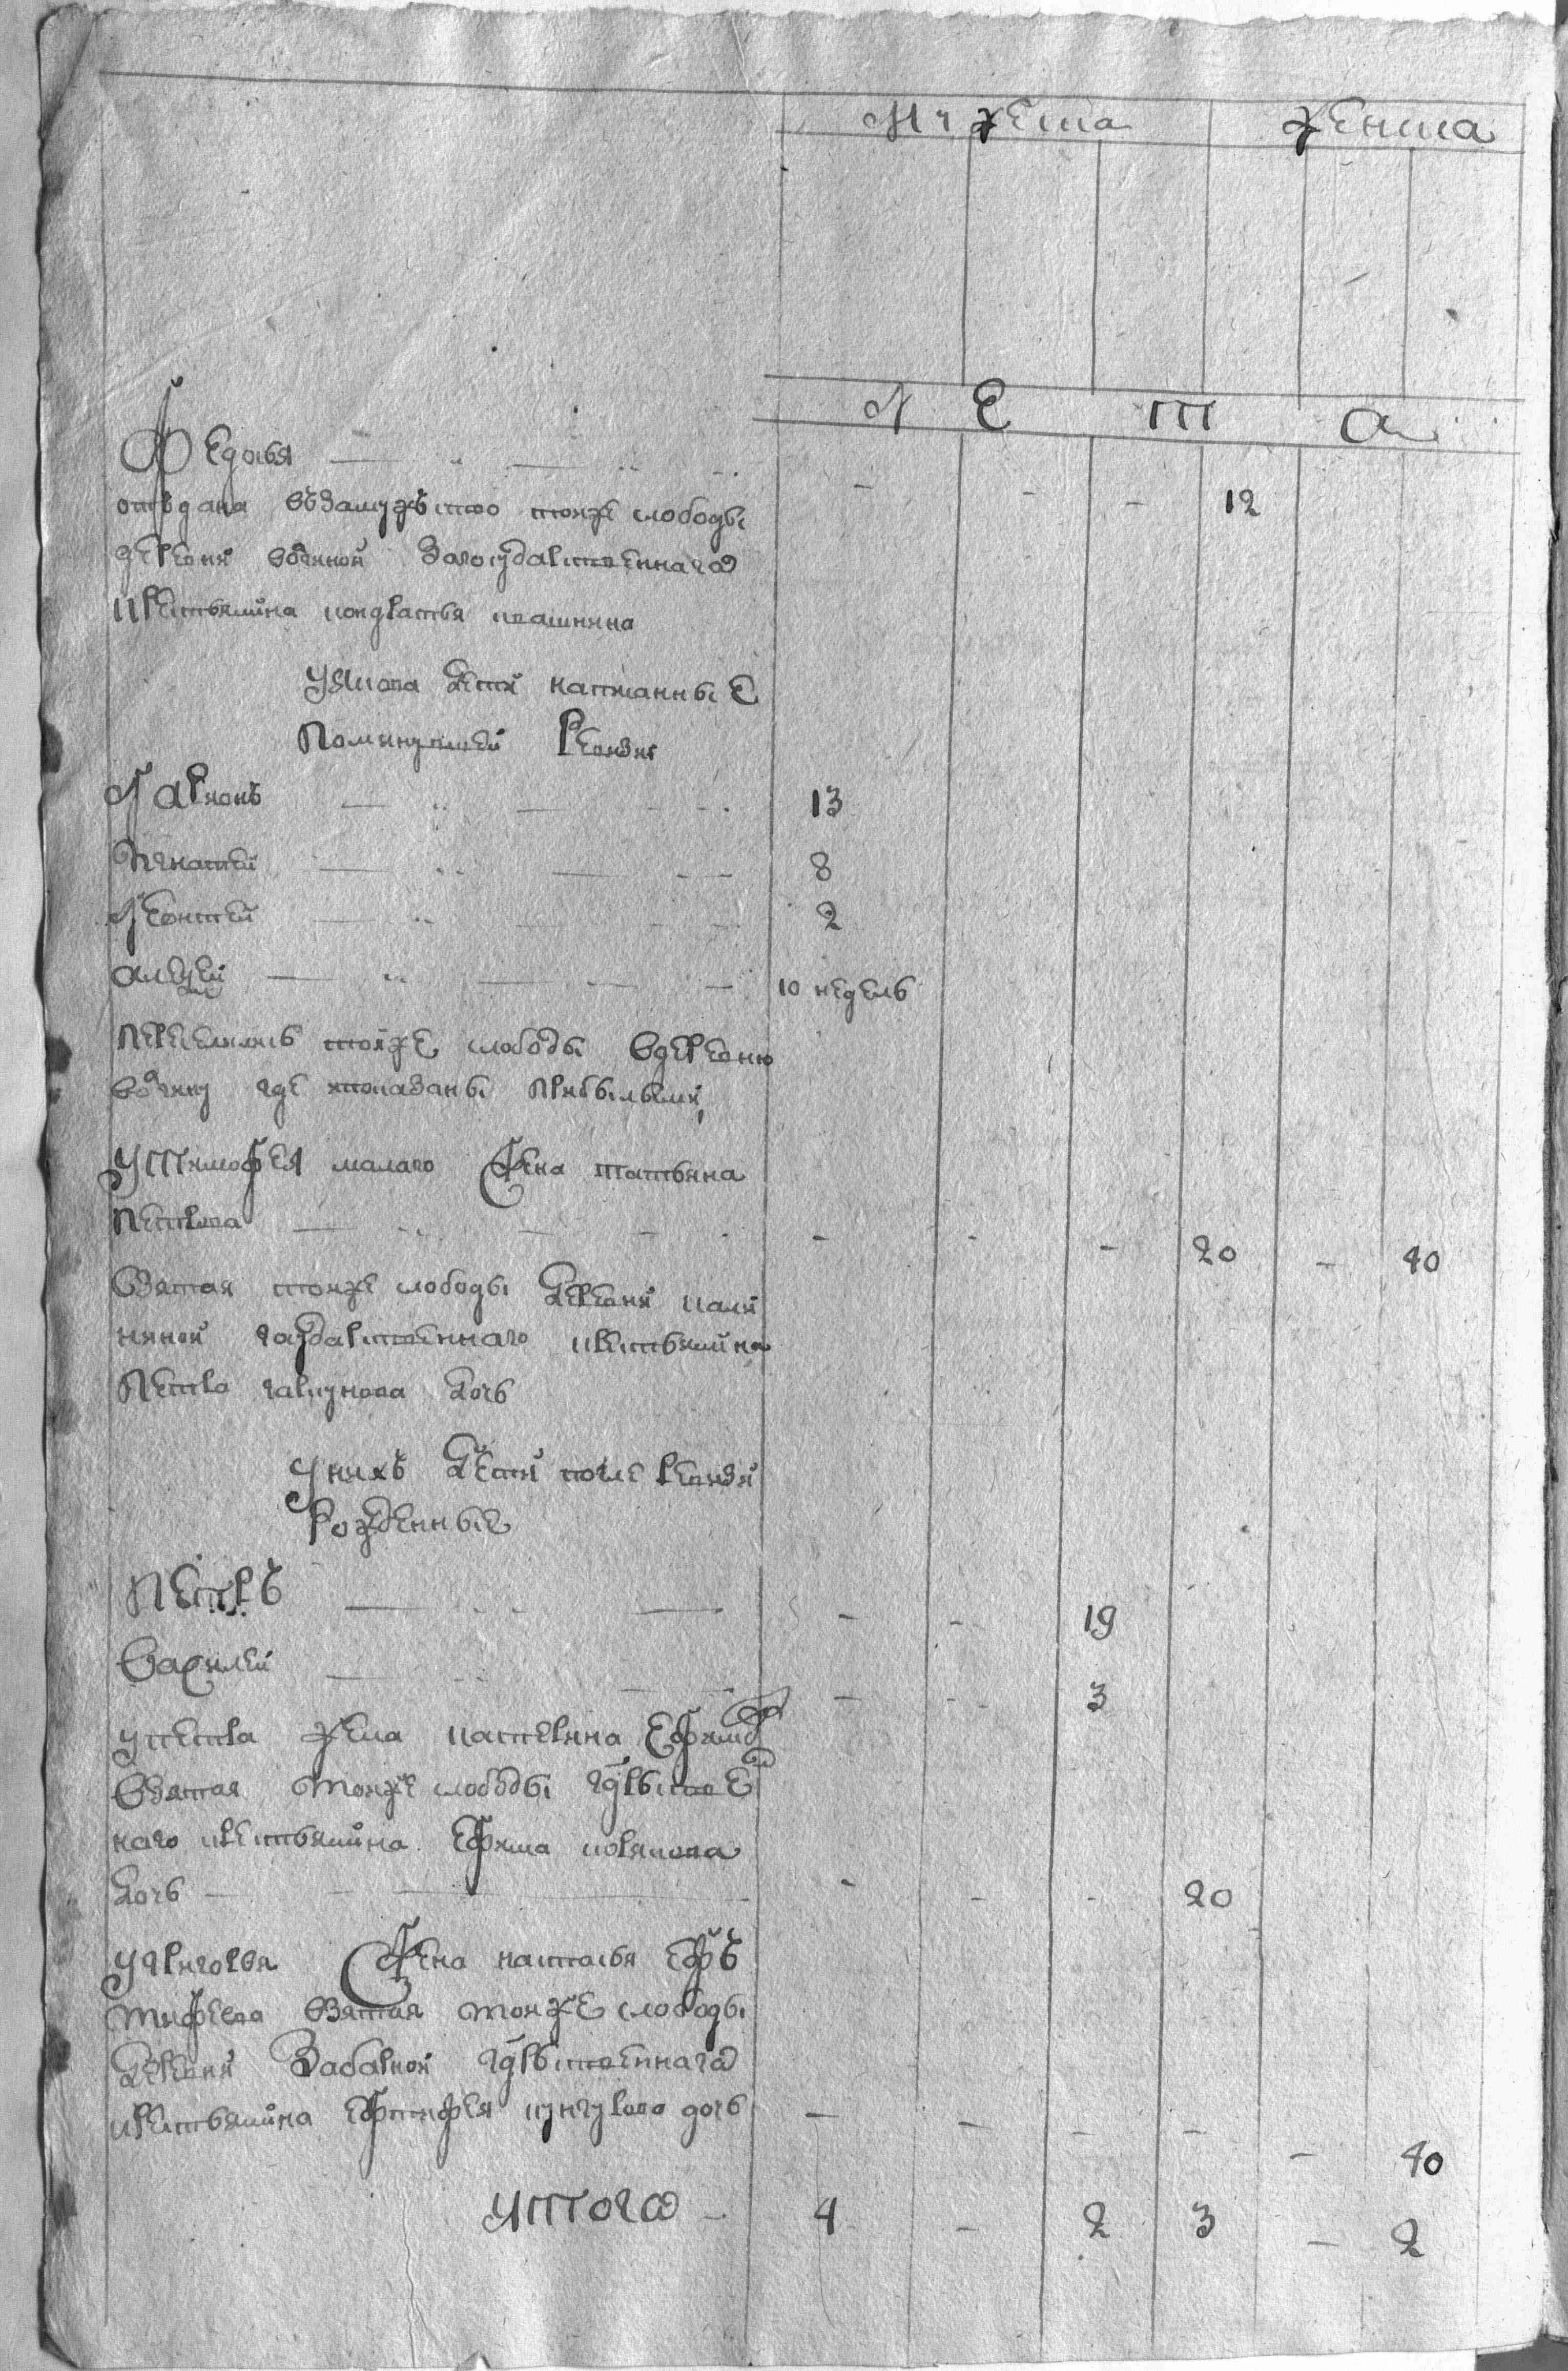 Мужеска женска
Л Е Т А
Федосья
отъдана въ замужъство тояже слободы - - - 12
деревни загосударственнаго
крестьянина кондратья квашнина
У якова дети написанные
По минувшей Ревизии
Ларионъ 13
Игнатей 8
Леонтей 2
алексей 10 неделъ
переселились тояже слободы вдеревню
где ипоказаны прибылыми
У Тимофея малаго Жена татьяна
петрова - - - 20 - 40
Взятая тояже слободы Деревни кали
ниной государственнаго крестьянина
Петра дочь
У нихъ Дети после Ревизии
Рожденные
Петръ - - 19
Василей - - 3
у петра жена катерина Ефимова
Взятая тоиже слободы государствен
наго крестьянина Ефима
дочь - - - 20
У григорья Жена наталья Ефъ
тифеева взятая тояже слободы
Деревни Забарной государственнаго
крестьянина Ефтифея дочь - - - - - 40
Итого 4 - 2 3 - 2